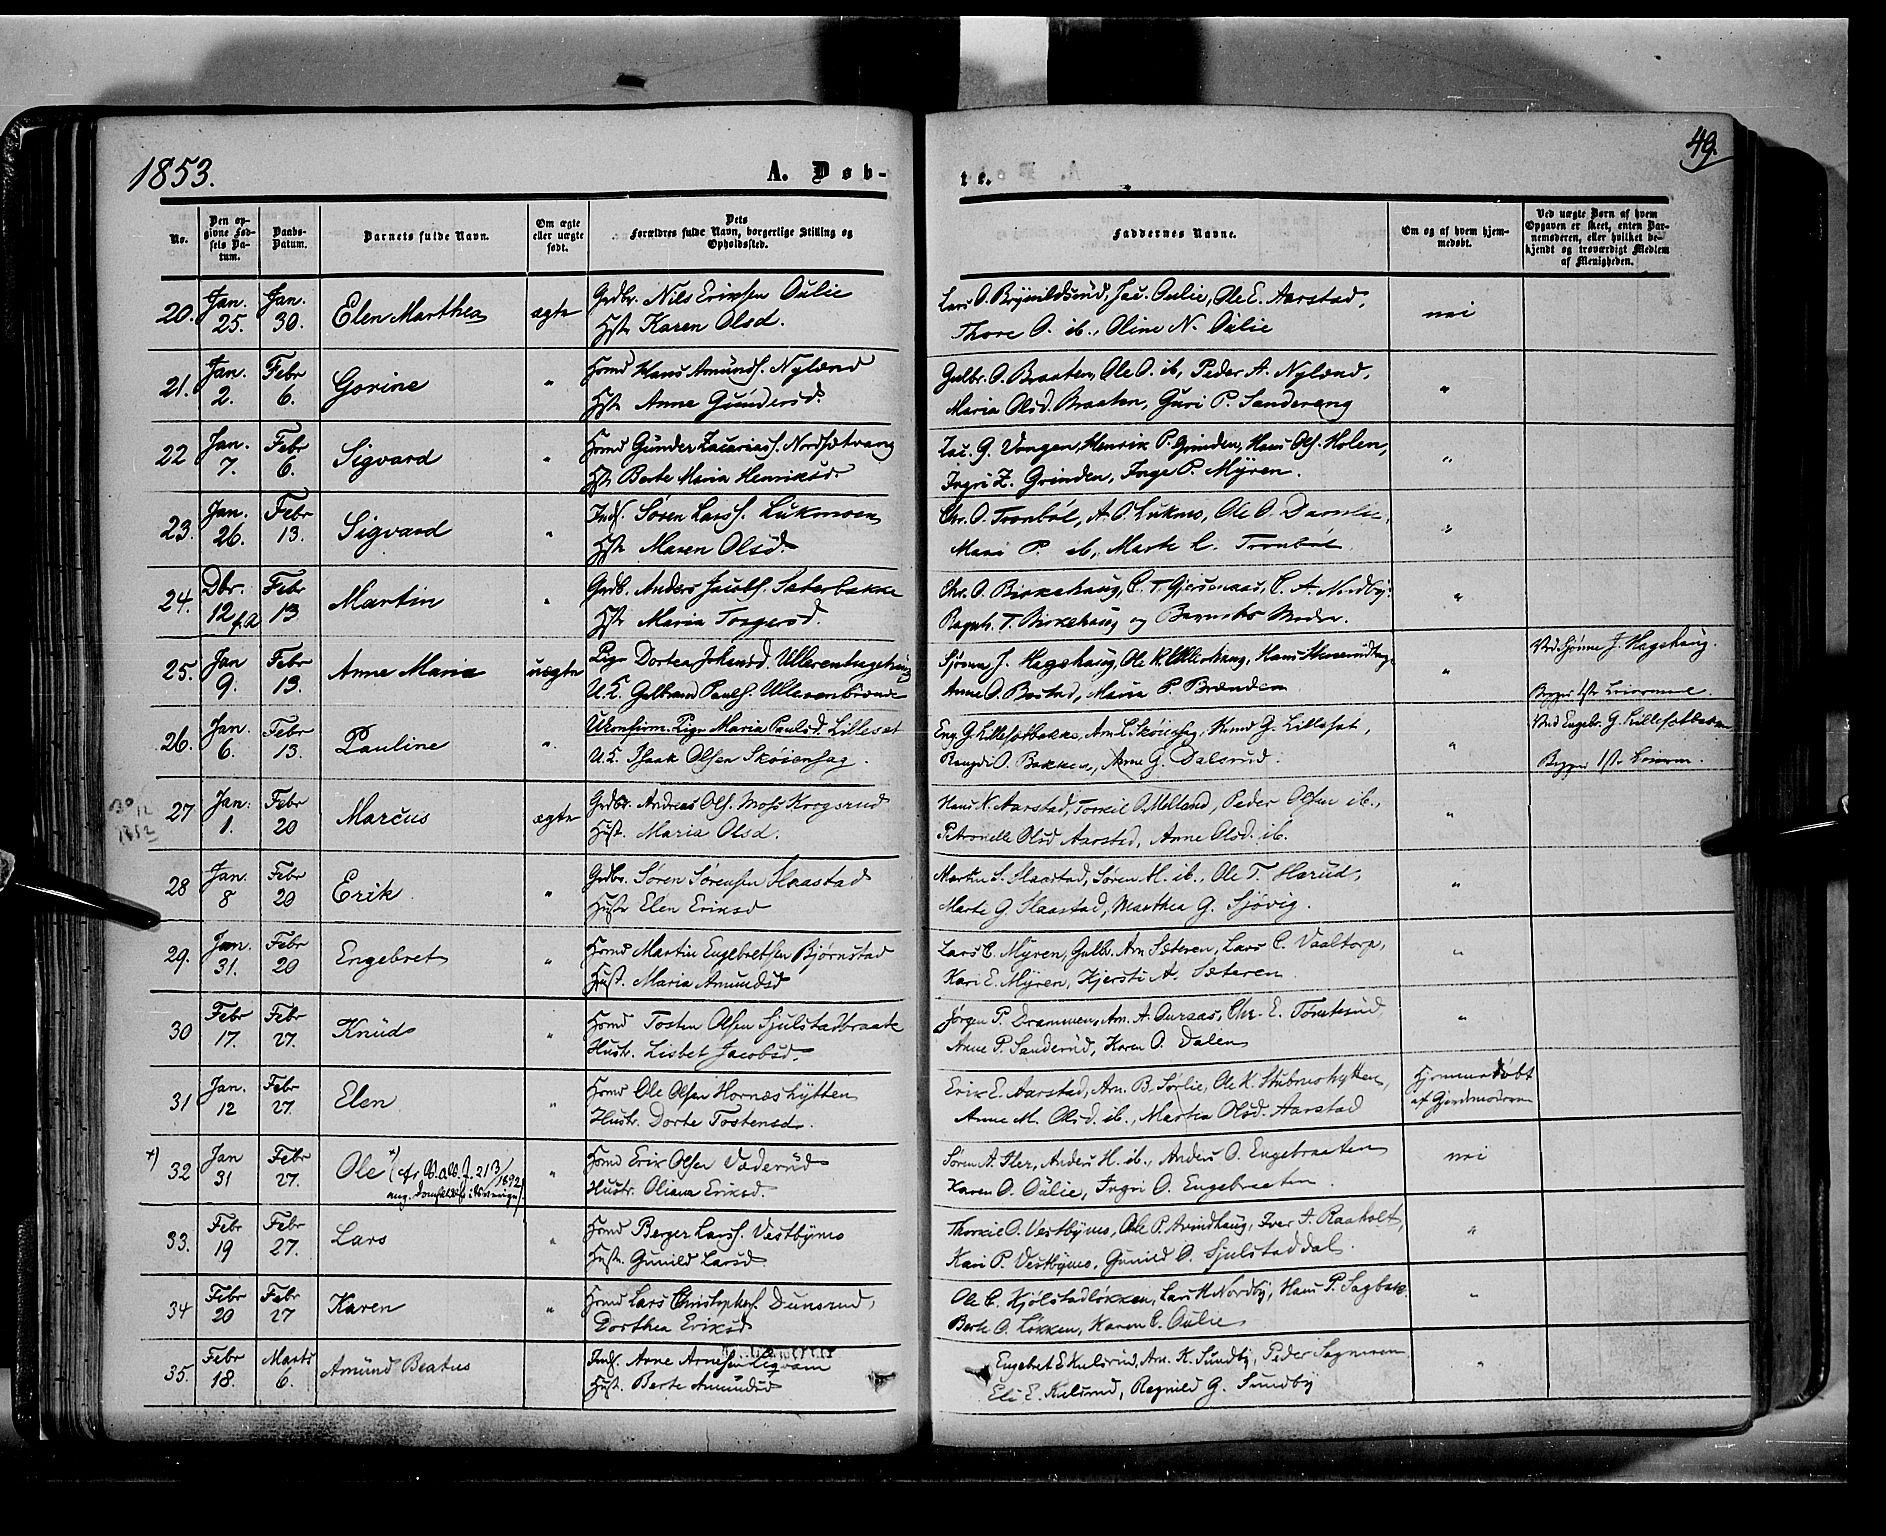 1853.
A. Døb-
te.
49.
No.
Den op-
givne Fød-
sels Da-
tum.
Daabs-
Datum.
Barnets fulde Navn.
Om ægte
eller uægte
født.
Dets
Forældres fulde Navn, borgerlige Stilling og
Opholdssted.
Faddernes Navne.
Om og af hvem hjem-
medøbt.
Ved uægte Børn af hvem
Opgaven er skeet, enten Bar-
nemoderen, eller hvilket be-
kjendt og troværdigt Medlem
af Menigheden.
20. Jan. 25. Jan. 30. Elen Marthea ægte Grdbr. Nils Eriksen Oulie
Hstr Karen Olsd.
Lars O. Brynildsrud, Jac. Oulie, Ole E. Aarstad,
Thore O. ib., Oline N. Oulie
nei
21. Jan. 2. Febr 6. Gorine " Hmd Hans Amunds. Nyland
Hstr Anne Gundersd.
Gulbr. O. Braaten, Ole O. ib, Peder A. Nyland,
Maria Olsd. Braaten, Guri P. Sandereng
"
22 Jan. 7. Febr 6. Sigvard " Hmd Gunder Zacariass. Nordsetvang
Hstr Berte Maria Henriksd.
Zac. G. Vangen, Henrik P. Grinden, Hans Ols. Holen,
Ingri Z. Grinden, Inge P. Myren.
"
23. Jan. 26. Febr 13. Sigvard " Inds. Søren Larss. Lukmoen
Hstr Maren Olsd.
Chr. O. Tronbøl, A. O. Lukmo, Ole O.
Mari P. ib, Marte L. Tronbøl
"
24. Dbr. 12 f.A Febr 13 Martin " Grdb. Anders Jacobs. Saterbakke
Hstr Maria Torgersd.
Chr. O. Birkehaug, C. T. C. A. Nordby,
Ragnh. T. Birkehaug og Barnets Moder.
"
25. Jan 9. Febr 13. Anne Maria uægte Pige Dortea Johansd. Ullerenhagehaug
U.K. Gulbrand Pauls. Ullerenbrænde
J. Hagehaug, Ole K. Hans
Anne O. Bostad, Maria P. Brænden
"
Ved J. Hagehaug.
Begges 1ste Leiermaal.
26. Jan. 6. Febr 13. Pauline ". Ukonfirm. Pige Maria Paulsd. Lilleset
U.K. Isaak Olsen Skøiensag.
Eng. G. Lillesetbakke, Arn. L. Skøiensag, Knud G. Lilleset,
O. Bakken, Anne G. Dalsrud.
"
Ved Engebr. G. Lillesetbakken
Begges 1ste Leierm.
30/12
1852
27 Jan. 1. Febr 20 Marcus ægte Grdbr. Andreas Ols. Moss Krogsrud
Hust. Maria Olsd.
Hans K. Aarstad, Torkil O. Melland, Peder Olsen ib.,
Petronelle Olsd Aarstad, Anne Olsd. ib.
"
28 Jan. 8 Febr 20 Erik " Grdbr. Søren Sørensen Haastad
Hustr Elen Eriksd
Marten S. Slaastad, Søren H. ib., Ole T. Herud,
Marte G. Slaastad, Marthea G. Sjøvig.
"
29. Jan. 31. Febr 20 Engebret " Hmd Martin Engebretsen Bjørnstad
Hust. Maria Amundsd
Lars C. Myren, Gulb. Arn. Sæteren, Lars C. Vaaltorp,
Kari E. Myren, Kjersti A. Sæteren
"
30 Febr 17. Febr 27. Knud " Hmd Tosten Olsen Sjulstadbraate
Hustr. Lisbet Jacobsd.
Jørgen P. Drammen, Arn. A. Auraas, Chr. E. Tømterud,
Anne P. Sanderud, Karen O. Dalen
"
31 Jan. 12 Febr 27. Elen " Hmd Ole Olsen Hornæshytten
Hustr. Dorte Tostensd.
Erik E. Aarstad, Arn. B. Sørlie, Ole K. Stubmohytten,
Anne M. Olsd. ib., Martea Olsd. Aarstad
Hjemmedøbt
af Gjordmoderen
*) 32 Jan 31 Febr 27. Ole *) (cfr. Vdb. J. 213/1892
ang. Domfældelse i Norverige). " Hmd Erik Olsen Vaderud
Hustr. Oliana Eriksd.
Søren A. Iler, Anders H. ib., Anders O. Engebraaten
Karen O. Oulie, Ingri O. Engebraaten.
nei
33. Febr 19 Febr 27. Lars " Hmd Berger Larss. Vestbymo
Hustr. Gunild Larsd
Thorkil O. Vestbymo, Ole P. Arvidhaug, Iver A. Raaholt,
Kari P. Vestbymo, Gunild O. Sjulstaddal.
"
34 Febr 20 Febr 27 Karen " Hmd Lars Christophers. Dunsrud,
Dorthea Eriksd
Ole C. Hjølstadløkken, Lars H. Nordby, Hans P. Sagbak,
Berte O. Løkken, Karen C. Oulie
"
35. Febr 18. Marts 6. Amund Beatus Inds. Arne Arnesen Ligvam
Hust. Berte Amundsd
Engebret E. Kulsrud, Arn. K. Sundby, Peder Sagmoen
Eli E. Kulsrud, Ragnild G. Sundby
"